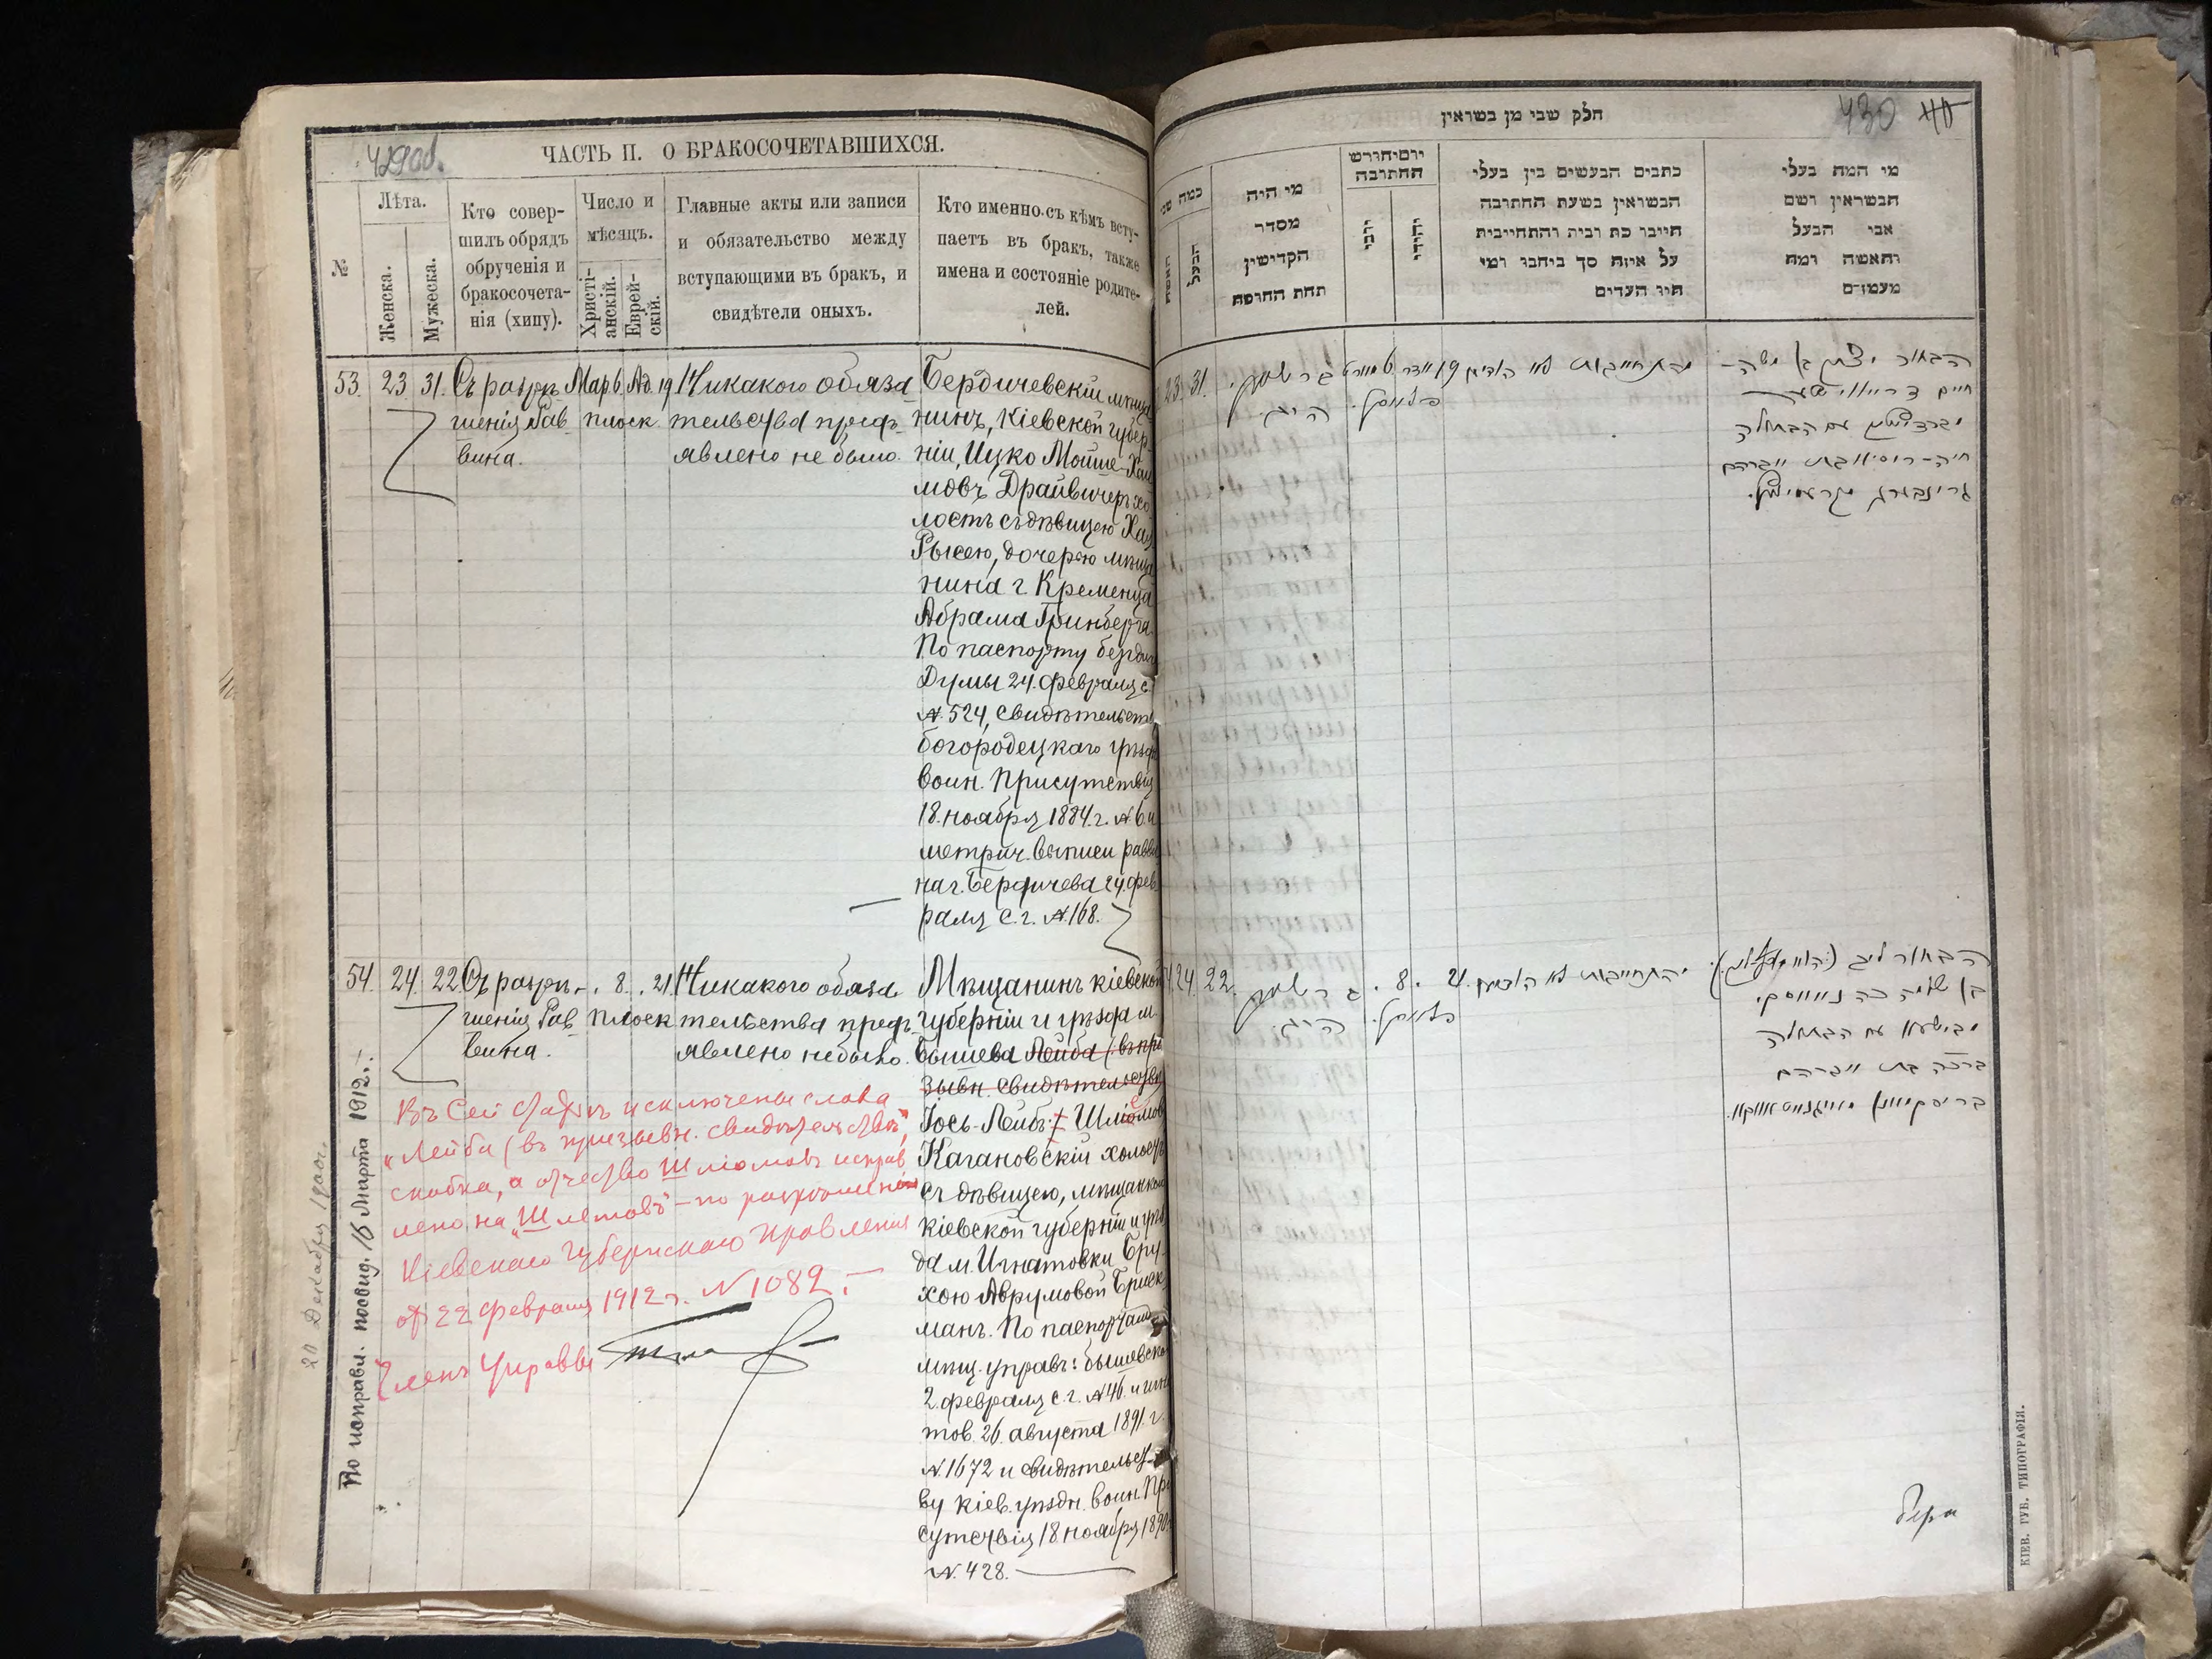 429об.
ЧАСТЬ II. О БРАКОСОЧЕТАВШИХСЯ.
№
Лѣта.
Женска.
Мужеска.
Кто совер-
шилъ обрядъ
обрученія и
бракосочета-
нія (хипу).
Число и
мѣсяцъ.
Христі-
анскій.
Еврей-
скій.
Главные акты или записи
и обязательство между
вступающими въ бракъ, и
свидѣтели оныхъ.
Кто именно съ кѣмъ всту-
паетъ въ бракъ, также
имена и состояніе родите-
лей.
53. 23. 31. Съ разрѣ- Мар. 6. Ад. 19
шенія Рав- Плоск.
вина.
Никакого обяза-
тельства предъ-
явлено не было.
Бердичевскій мѣща
нинъ, Кіевской губер-
ніи, Ицко Мойше-Хаи
мовъ Драйвичеръ хо
лостъ съ дѣвицею Хая
Рысею, дочерью мѣща
нина г. Кременца
Абрама Гринберга.
По паспорту бердич
Думы 24. февраля с.
№. 524, свидѣтельств
богородецкаго уѣзд
воин. Присутствія
18. ноября 1884. г. №. 6. и
метрич. выписи равви
на г. Бердичева 24. фев
раля с. г. №. 168.
54. 24. 22. Съ разрѣ- . 8. . 21.
шенія Рав Плоск
вина.
Никакого обяза
тельства предъ-
явлено не было.
Мѣщанинъ кіевской
губерніи и уѣзда м.
Бышева Лейба (въ при
зывн. свидѣтельствѣ
Іось-Лейбъ) Шлемов
Кагановскій холостъ
съ дѣвицею, мѣщанкою
кіевской губерніи и уѣз
да м. Игнатовки Бру-
хою Аврумовой Бриск
манъ. По паспортамъ
мѣщ. управъ: бышевской
2. февраля с. г. №46. и игна
тов. 26. августа 1891. г.
№. 1672 и свидѣтельст-
ву кіев. уѣздн. воин. При
сутствія 18. ноября 1890.
№. 428.
Въ Сей статьѣ исключены слова
„Лейба (въ призывн. свидѣтельствѣ",
скобка, а отчество Шліомовъ исправ
лено на „Шлемовъ" – по разрѣшенію
Кіевскаго Губернскаго Правленія
от 22 февраля 1912 г. № 1082.
Членъ Управы
По исправл. посвид. 16 Марта 1912 г.
20 Декабря 1900 г.
חלק שני מן בשואין
430 40
כמה שני
האשה
הבעל
מי היה
מסדר
הקדישין
תחת החופה
יום יחודש
החתונה
רומי
יהודי
כתבים הנעשים בין בעלי
הנשואין בשעת החתונה
חיוב כת ובית והתחייבות
על איזה סך ביחבו ומי
היו העדים
מי המה בעלי
הנשואין ושם
אבי הבעל
והאשה ומה
מעמדם
23. 31.
הבחור יצחק בן משה-
חיים דרייוויטשער
מברדיטשוב עם הבתולה
חיה-רוסי בת אברהם
גרינבערג מקרעמיניץ.
24. 22. . 8. 21.
בן שלמה קאגאנאווסקי.
מבישעוו עם הבתולה
ברכה בת אברהם
בריסקמאן מאיגנאטאווקא.
КІЕВ. ГУБ. ТИПОГРАФІЯ.